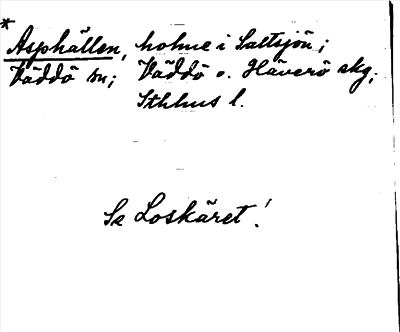 * Asphällen, holme i Saltsjön;
Väddö sn; Väddö o. Häverö skg;
Sthlms l.
Se Loskäret!